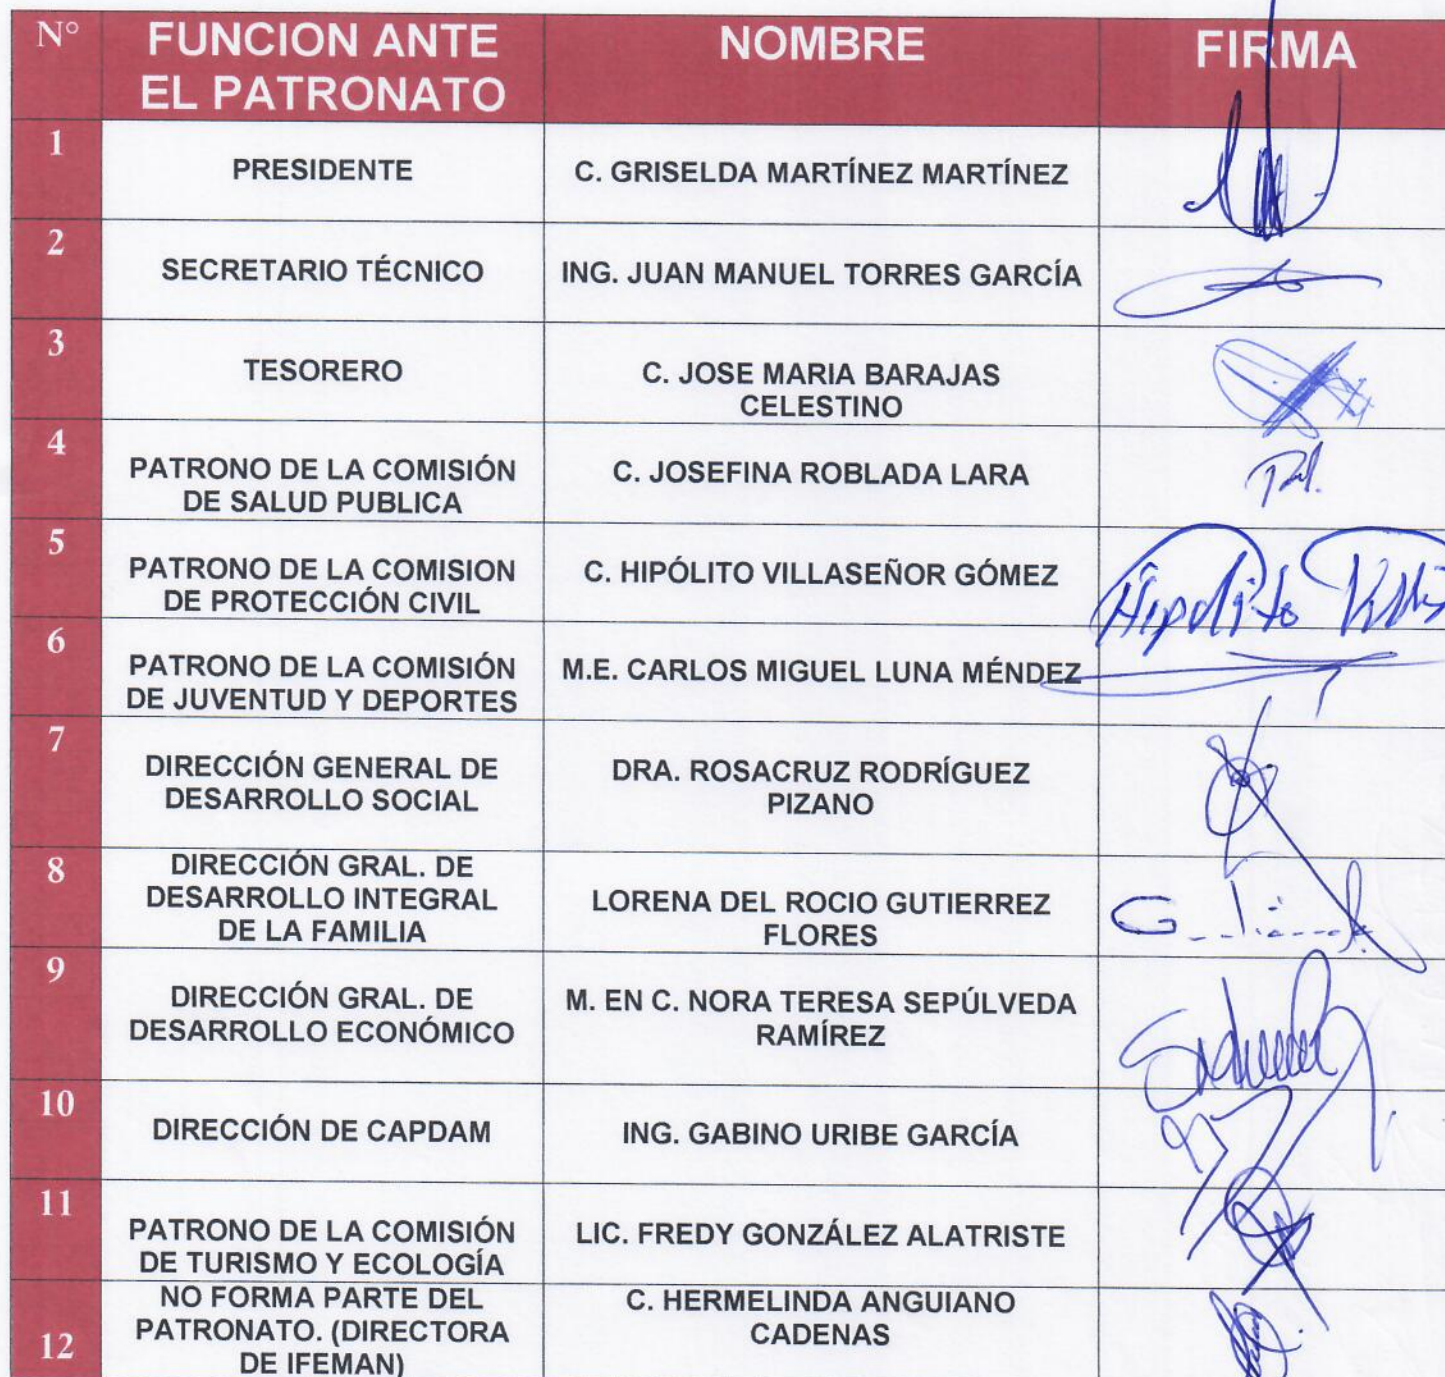 N° FUNCION ANTE EL PATRONATO NOMBRE FIRMA
1 PRESIDENTE C. GRISELDA MARTÍNEZ MARTÍNEZ
2 SECRETARIO TÉCNICO ING. JUAN MANUEL TORRES GARCÍA
3 TESORERO C. JOSE MARIA BARAJAS
CELESTINO
4 PATRONO DE LA COMISIÓN
DE SALUD PUBLICA C. JOSEFINA ROBLADA LARA
5 PATRONO DE LA COMISION
DE PROTECCIÓN CIVIL C. HIPÓLITO VILLASEÑOR GÓMEZ Hipolito
6 PATRONO DE LA COMISIÓN
DE JUVENTUD Y DEPORTES M.E. CARLOS MIGUEL LUNA MÉNDEZ
7 DIRECCIÓN GENERAL DE
DESARROLLO SOCIAL DRA. ROSACRUZ RODRÍGUEZ
PIZANO
8 DIRECCIÓN GRAL. DE
DESARROLLO INTEGRAL
DE LA FAMILIA LORENA DEL ROCIO GUTIERREZ
FLORES
9 DIRECCIÓN GRAL. DE
DESARROLLO ECONÓMICO M. EN C. NORA TERESA SEPÚLVEDA
RAMÍREZ
10 DIRECCIÓN DE CAPDAM ING. GABINO URIBE GARCÍA
11 PATRONO DE LA COMISIÓN
DE TURISMO Y ECOLOGÍA LIC. FREDY GONZÁLEZ ALATRISTE
12 NO FORMA PARTE DEL
PATRONATO. (DIRECTORA
DE IFEMAN) C. HERMELINDA ANGUIANO
CADENAS